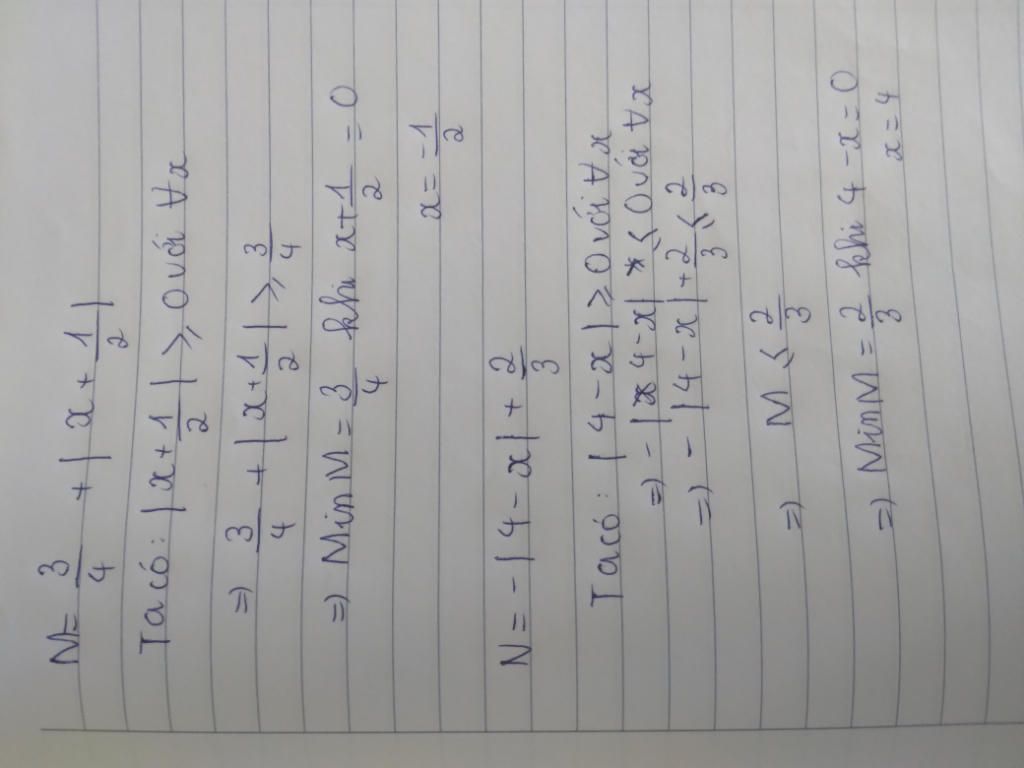 M = 3/4 + | x + 1/2 |
Ta có: | x + 1/2 | ⩾ 0 với ∀x
=> 3/4 + | x + 1/2 | ⩾ 3/4
=> Min M = 3/4 khi x + 1/2 = 0
x = -1/2
N = - | 4 - x | + 2/3
Ta có: | 4 - x | ⩾ 0 với ∀x
=> - | 4 - x | ⩽ 0 với ∀x
=> - | 4 - x | + 2/3 ⩽ 2/3
=> M ⩽ 2/3
=> Min M = 2/3 khi 4 - x = 0
x = 4